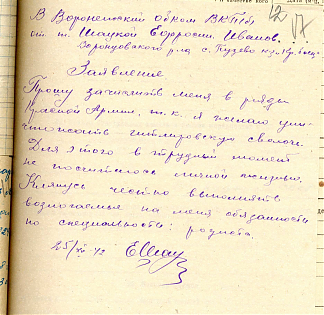 12
17
В Воронежский обком ВКП(б)
от т. Шацкой Ефросин. Иванов.
Воронцовского р-на с. Пузево
Заявление
Прошу зачислить меня в ряды
Красной Армии, т.к. я желаю уни-
чтожать гитлеровскую сволочь.
Для этого в трудный момент
не посчитаюсь личной жизнью.
Клянусь честно выполнять
возлагаемые на меня обязанности
по специальности:
25/ 42 ЕШац